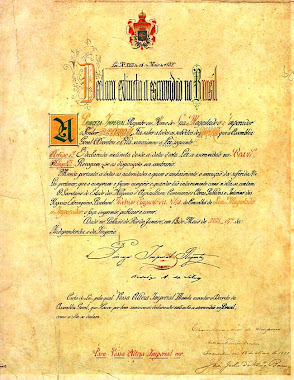 Declara extincta a escravidão no Brasil
A Princeza Imperial Regente em Nome de Sua Magestade o Imperador
o Senhor D. Pedro II, Faz saber a todos os subditos do Imperio que a Assembléa
Geral Decretou e Ella sanccionou a Lei seguinte:
Artigo 1º É declarada extincta desde a data d'esta Lei a escravidão no Brazil
Artigo 2º Revogam-se as disposições em contrario
Manda portanto a todas as autoridades a quem o conhecimento e execução da referida
Lei pertencer, que a cumpram e façam cumprir e guardar tão inteiramente como n'ella se contém
O Secretario de Estado dos Negocios d'Agricultura, Commercio e Obras Publicas e Interino dos
Negocios Estrangeiros, Bacharel Rodrigo Augusto da Silva do Conselho de Sua Magestade
o Imperador o faça imprimir, publicar e correr.
Dado no Palacio do Rio de Janeiro, em 13 de Maio de 1888, 67º da
Independencia e do Imperio.
Princeza Imperial Regente
Rodrigo A. da Silva
Carta de Lei, pela qual Vossa Alteza Imperial Manda executar o Decreto da
Assembléa Geral, que Houve por bem sanccionar declarando extincta a escravidão no Brazil,
como n'ella se declara.
Para Vossa Alteza Imperial ver